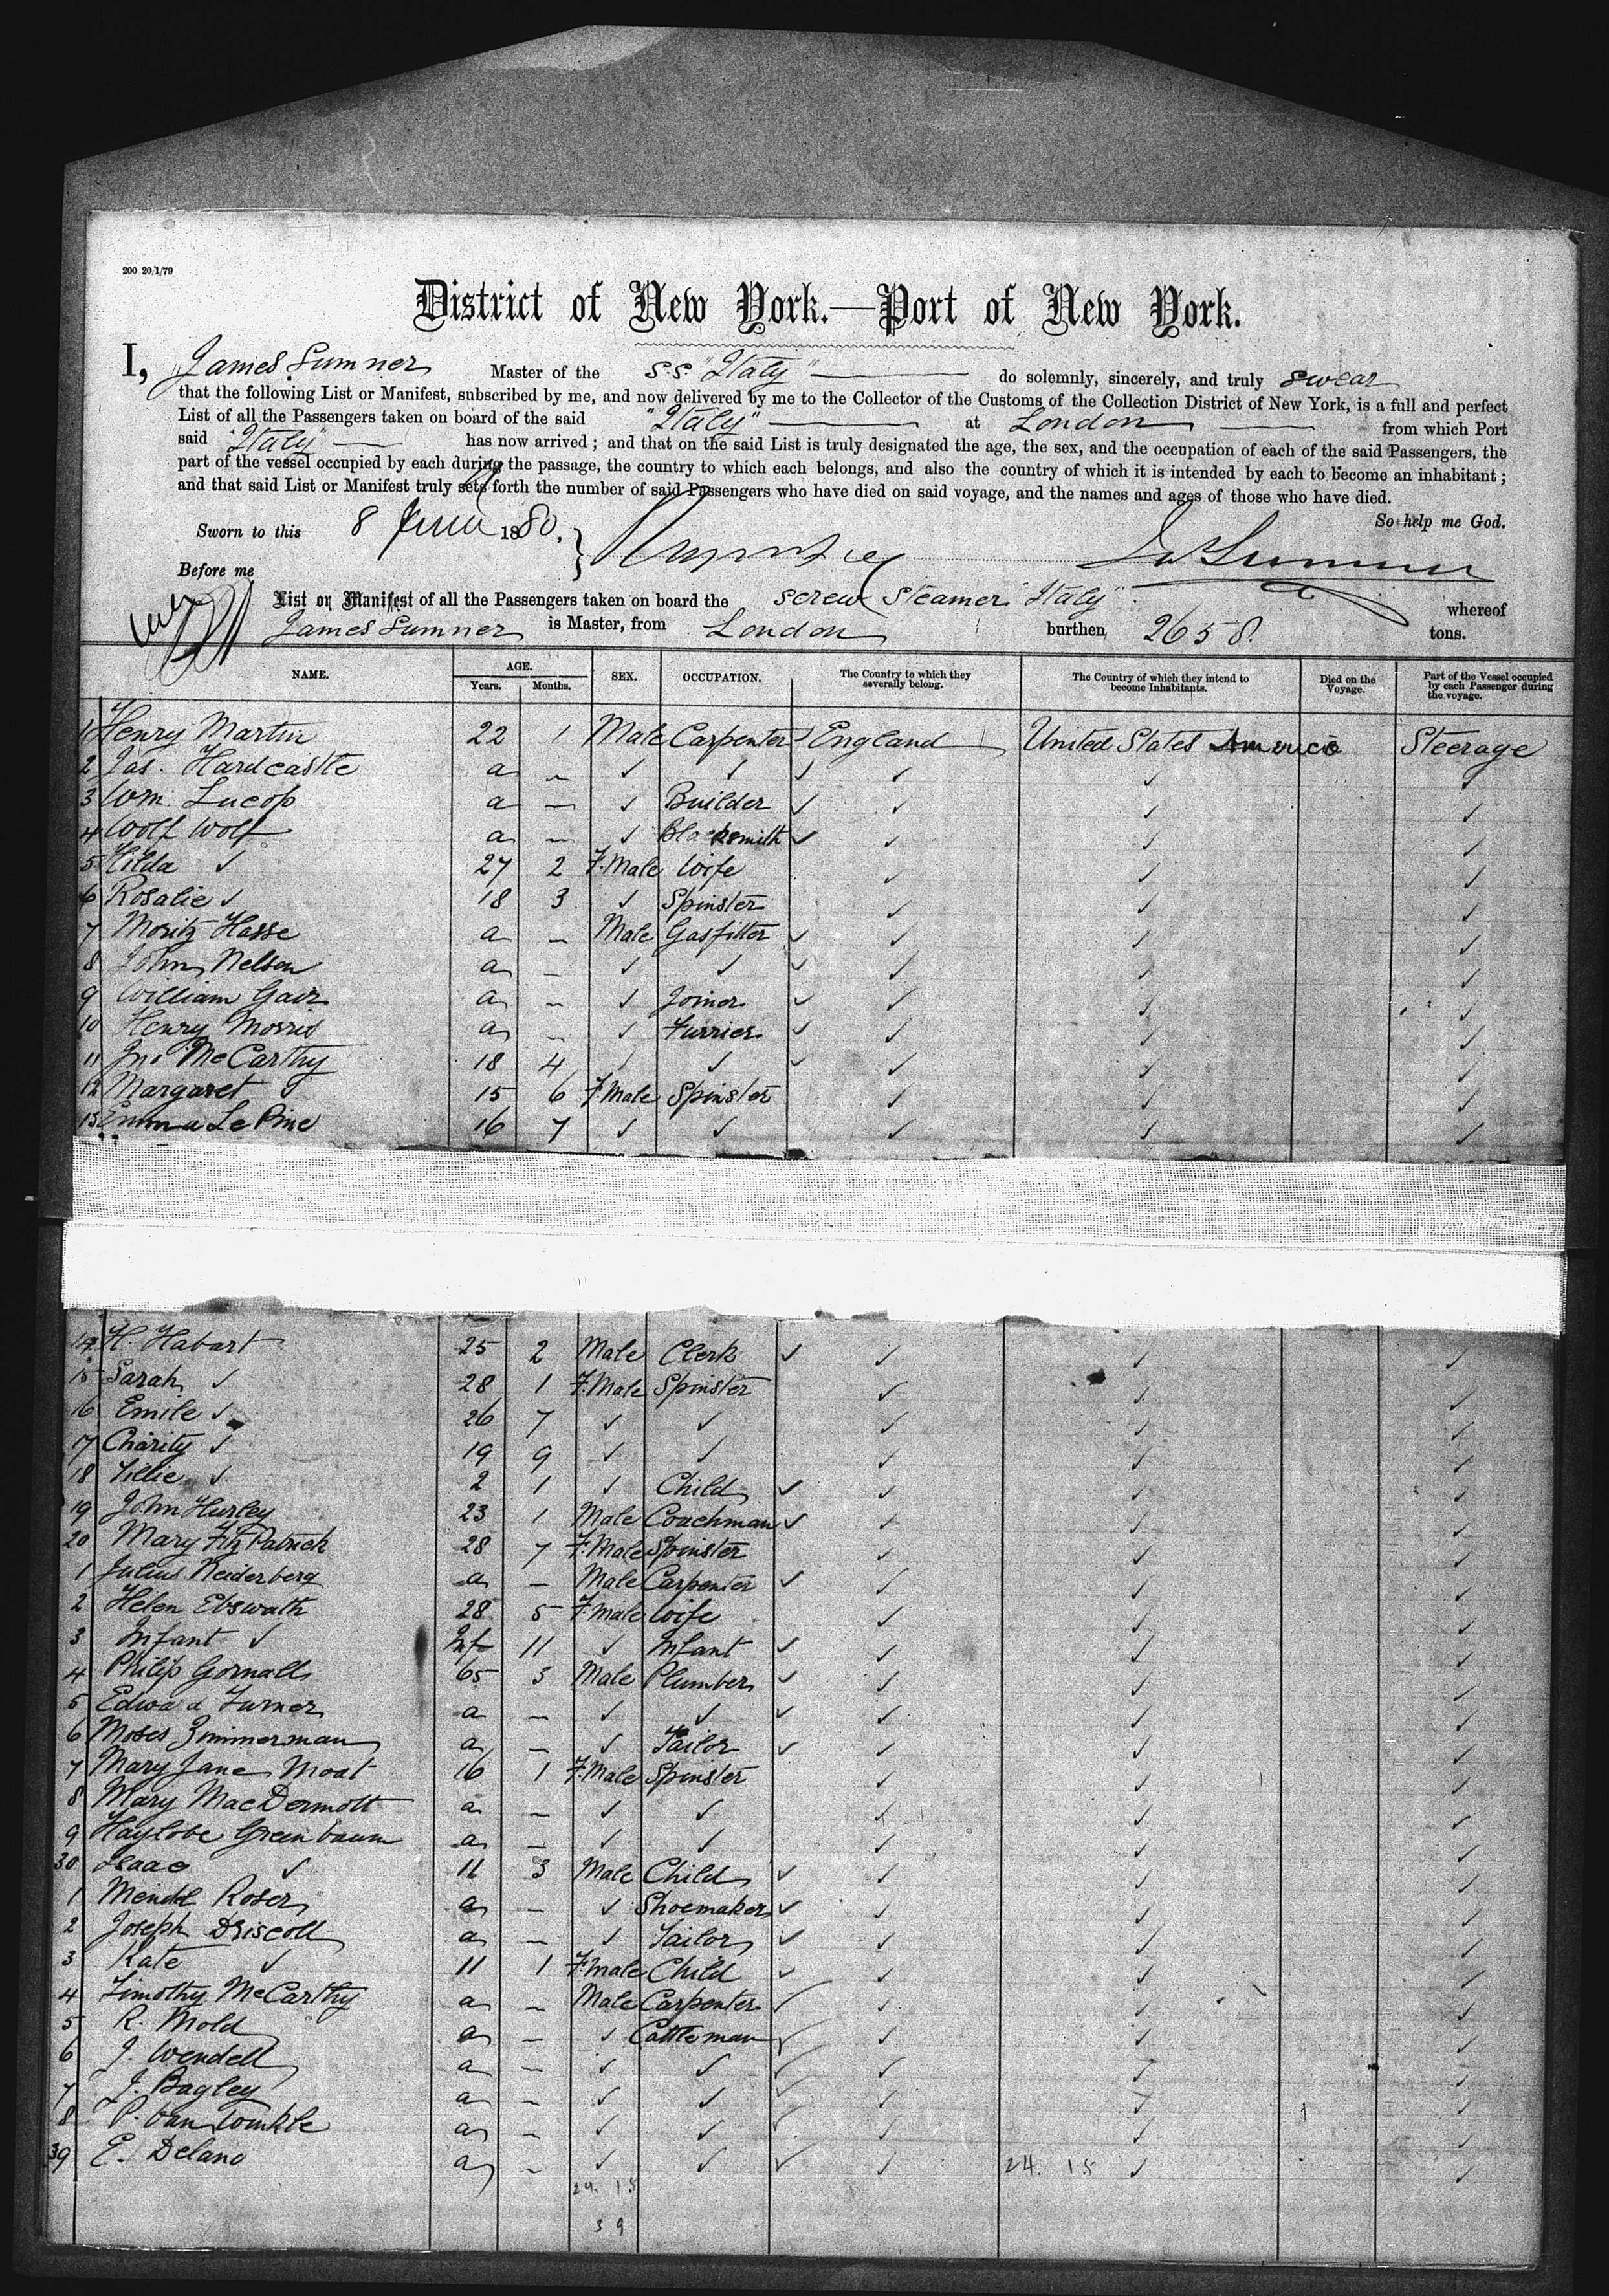 200 20/1/79
District of New York.—Port of New York.
I, James Sumner Master of the S.S. "Italy" do solemnly, sincerely, and truly swear
that the following List or Manifest, subscribed by me, and now delivered by me to the Collector of the Customs of the Collection District of New York, is a full and perfect
List of all the Passengers taken on board of the said "Italy" at London from which Port
said "Italy" has now arrived ; and that on the said List is truly designated the age, the sex, and the occupation of each of the said Passengers, the
part of the vessel occupied by each during the passage, the country to which each belongs, and also the country of which it is intended by each to become an inhabitant ;
and that said List or Manifest truly sets forth the number of said Passengers who have died on said voyage, and the names and ages of those who have died.
So help me God.
Sworn to this 8 June 1880.
Before me Jas Sumner
List or Manifest of all the Passengers taken on board the screw steamer "Italy" whereof
James Sumner is Master, from London burthen 2658. tons.
NAME. AGE. Years. Months. SEX. OCCUPATION. The Country to which they severally belong. The Country of which they intend to become Inhabitants. Died on the Voyage. Part of the Vessel occupied by each Passenger during the voyage.
1 Henry Martin 22 1 Male Carpenter England United States America Steerage
2 Jas. Hardcastle a — ✓ ✓ ✓ ✓ ✓ ✓
3 Wm. Lucop a — ✓ Builder ✓ ✓ ✓ ✓
4 Wolf Wolf a — ✓ Blacksmith ✓ ✓ ✓ ✓
5 Hilda ✓ 27 2 F.Male Wife ✓ ✓ ✓
6 Rosalie ✓ 18 3 ✓ Spinster ✓ ✓ ✓
7 Moritz Hasse a — Male Gasfitter ✓ ✓ ✓ ✓
8 John Nelson a — ✓ ✓ ✓ ✓ ✓ ✓
9 William Gair a — ✓ Joiner ✓ ✓ ✓ ✓
10 Henry Morris a — ✓ Furrier ✓ ✓ ✓ ✓
11 Jno McCarthy 18 4 ✓ ✓ ✓ ✓ ✓ ✓
12 Margaret ✓ 15 6 F.Male Spinster ✓ ✓ ✓
13 Emma Le Pine 16 7 ✓ ✓ ✓ ✓ ✓
14 H. Habart 25 2 Male Clerk ✓ ✓ ✓ ✓
15 Sarah ✓ 28 1 F.Male Spinster ✓ ✓ ✓
16 Emile ✓ 26 7 ✓ ✓ ✓ ✓ ✓
17 Charity ✓ 19 9 ✓ ✓ ✓ ✓ ✓
18 Tillie ✓ 2 1 ✓ Child ✓ ✓ ✓ ✓
19 John Hurley 23 1 Male Coachman ✓ ✓ ✓ ✓
20 Mary FitzPatrick 28 7 F.Male Spinster ✓ ✓ ✓
1 Julius Neiderberg a — Male Carpenter ✓ ✓ ✓ ✓
2 Helen Ebswath 28 5 F.male Wife ✓ ✓ ✓
3 Infant ✓ Inf 11 ✓ Infant ✓ ✓ ✓ ✓
4 Philip Gornalls 65 3 Male Plumber ✓ ✓ ✓ ✓
5 Edwad Turner a — ✓ ✓ ✓ ✓ ✓ ✓
6 Moses Zimmerman a — ✓ Tailor ✓ ✓ ✓ ✓
7 Mary Jane Moat 16 1 F.Male Spinster ✓ ✓ ✓
8 Mary MacDermott a — ✓ ✓ ✓ ✓ ✓
9 Haylobe Greenbaum a — ✓ ✓ ✓ ✓ ✓
30 Isaac ✓ 11 3 Male Child ✓ ✓ ✓ ✓
1 Mendel Roser a — ✓ Shoemaker ✓ ✓ ✓ ✓
2 Joseph Driscoll a — ✓ Tailor ✓ ✓ ✓ ✓
3 Kate ✓ 11 1 F.male Child ✓ ✓ ✓ ✓
4 Timothy McCarthy a — Male Carpenter ✓ ✓ ✓ ✓
5 R. Mold a — ✓ Cattleman ✓ ✓ ✓ ✓
6 J. Wendell a — ✓ ✓ ✓ ✓ ✓ ✓
7 J. Bagley a — ✓ ✓ ✓ ✓ ✓ ✓
8 P. Van Winkle a — ✓ ✓ ✓ ✓ ✓ ✓
39 E. Delano a — ✓ ✓ ✓ ✓ 24. 15 ✓ ✓
24. 15
39